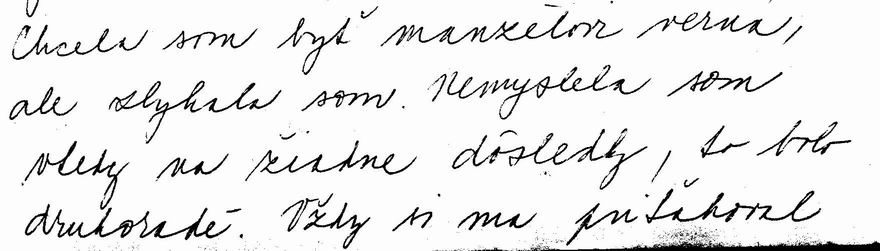 Chcela som byť manželovi verná,
ale zlyhala som. Nemyslela som
vtedy na žiadne dôsledky, to bolo
druhoradé. Vždy si ma priťahoval